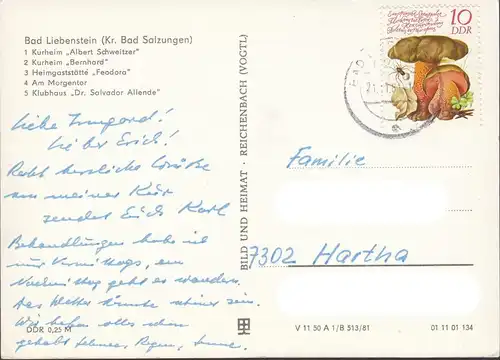 Bad Liebenstein (Kr. Bad Salzungen)
1 Kurheim „Albert Schweitzer"
2 Kurheim „Bernhard"
3 Heimgaststätte „Feodora"
4 Am Morgentor
5 Klubhaus „Dr. Salvador Allende"
Liebe Irmgard!
Lieber Erich!
Recht herzliche Grüße
aus meiner Kur
sendet Euch Karl
Behandlungen habe ich
nur Vormittags, am
Nachmittag geht es wandern.
Das Wetter könnte schöner sein.
Wir haben alles schon
gehabt Schnee, Regen, Sonne.
DDR 0,25 M
BILD UND HEIMAT · REICHENBACH (VOGTL)
10
DDR
Familie
7302 Hartha
V 11 50 A 1/B 513/81
01 11 01 134